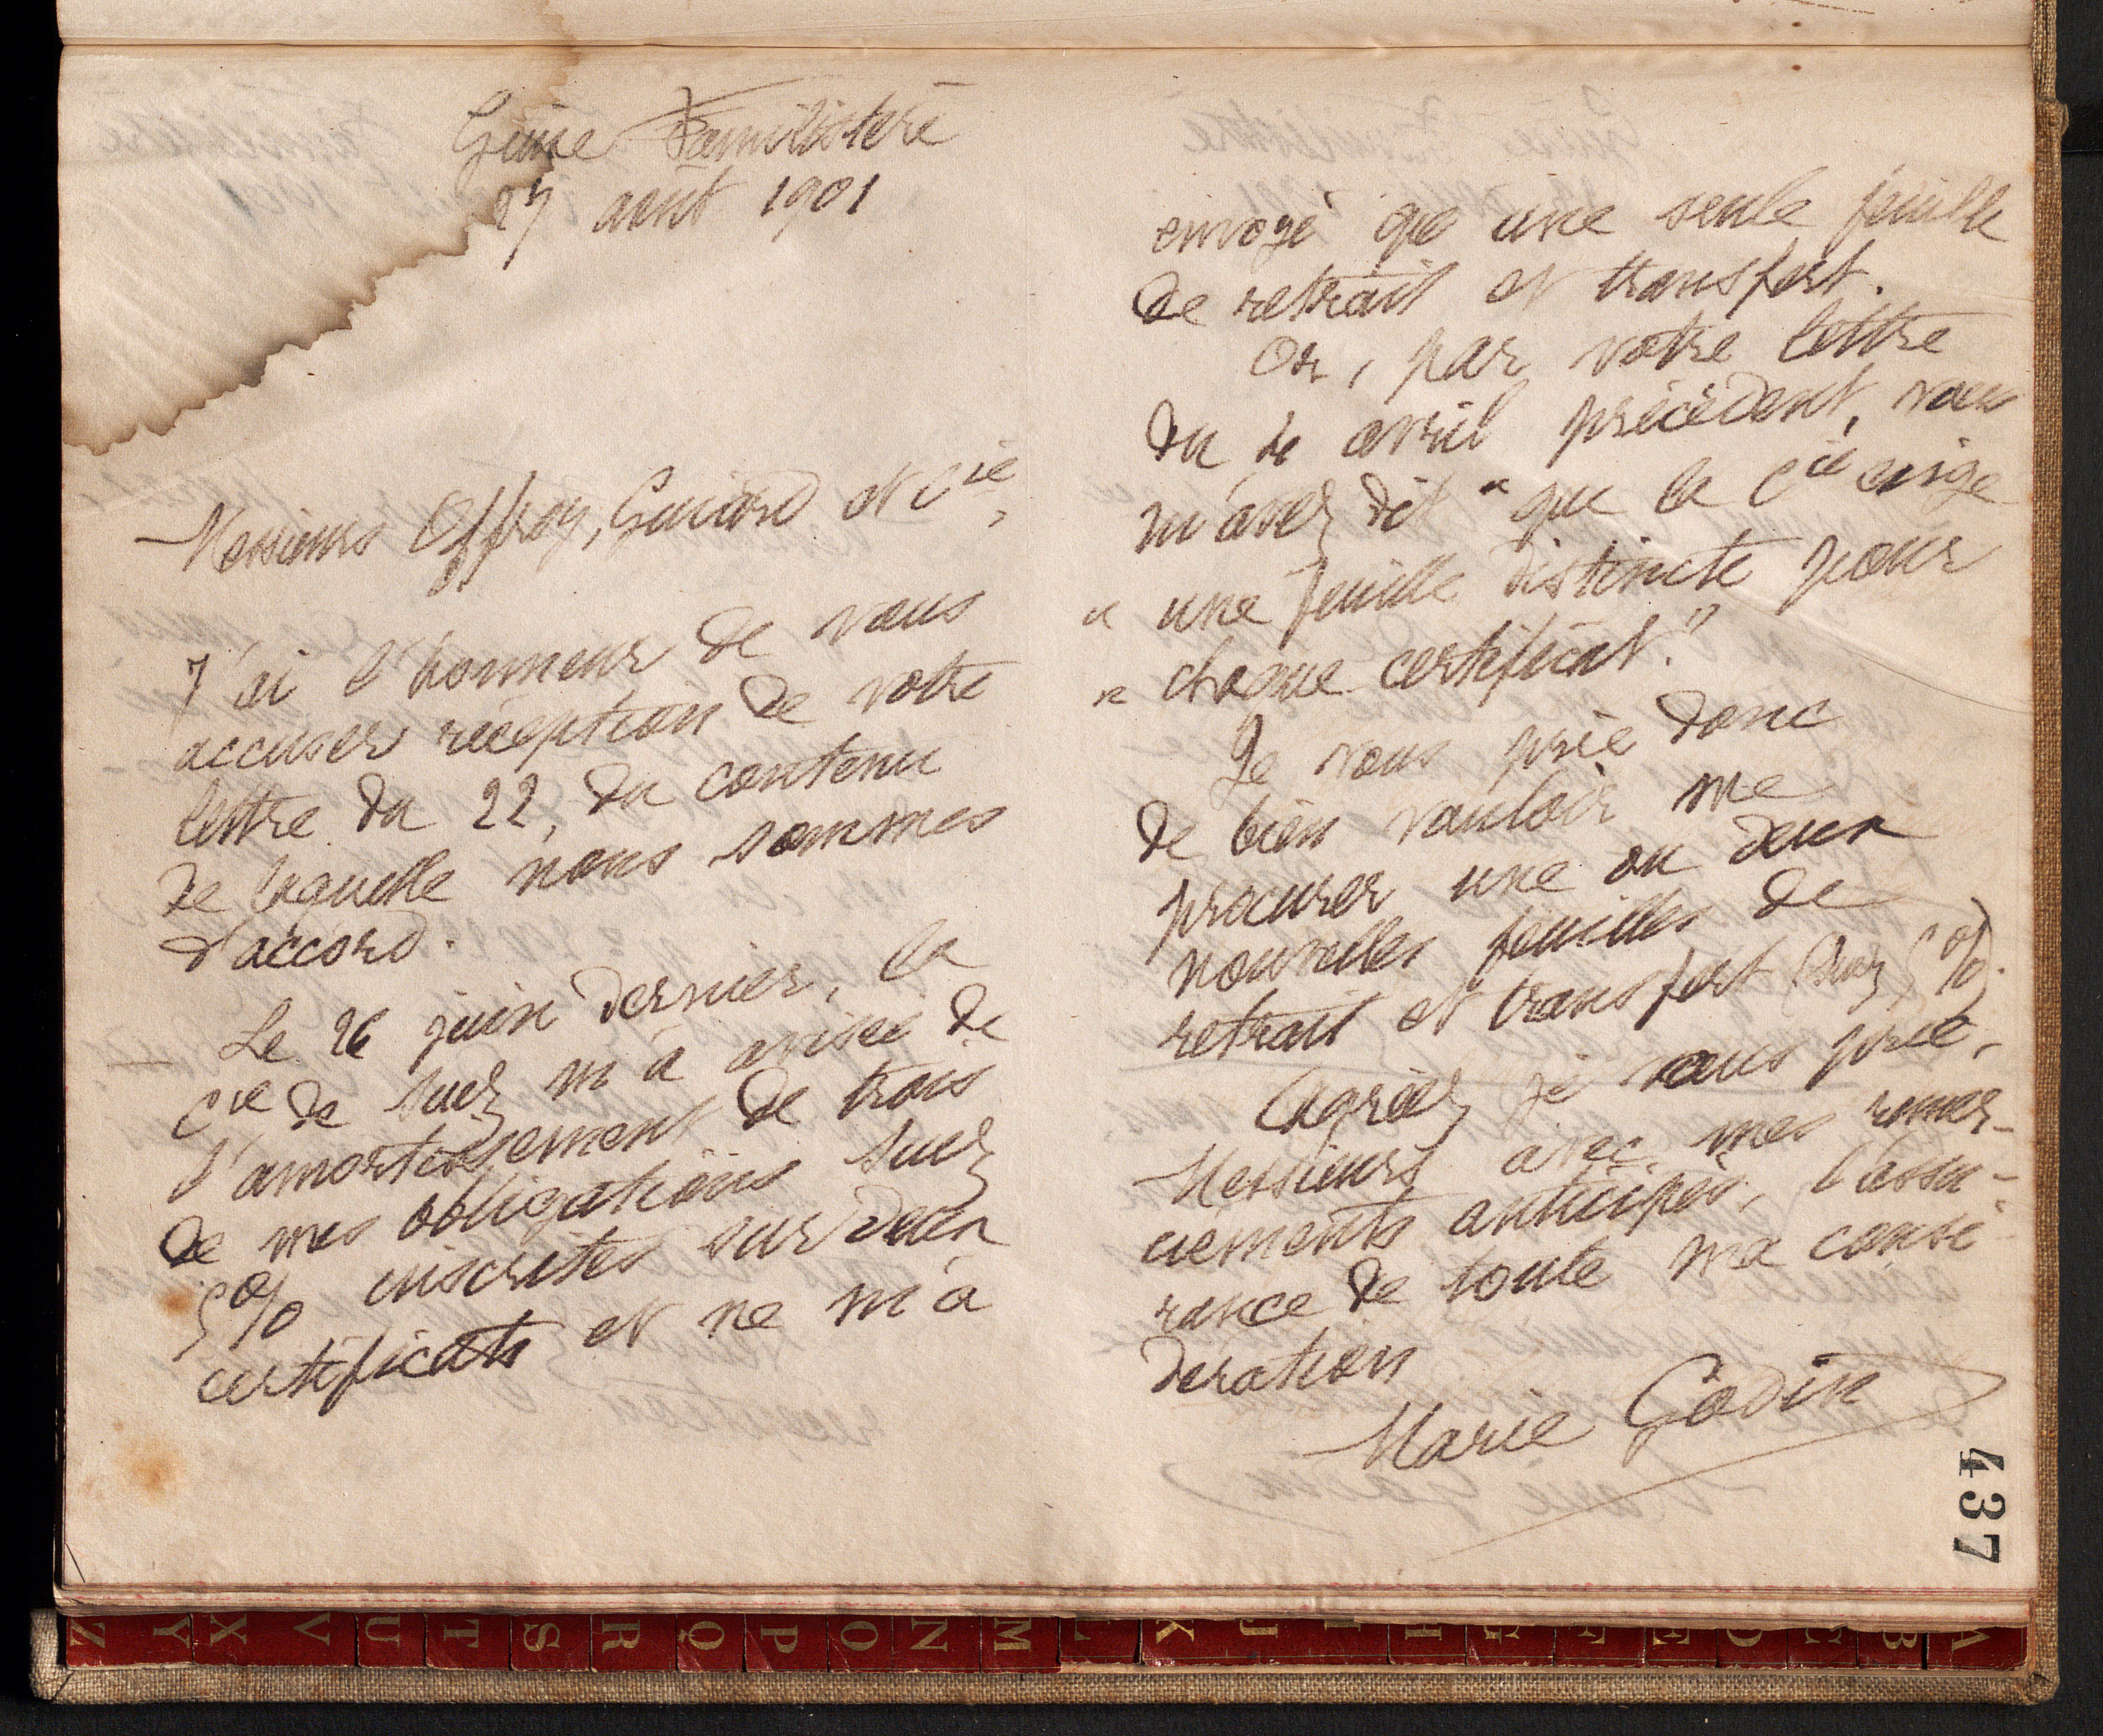 Guise Familistère
27 août 1901
Messieurs Offroy, Guiard et Cie,
J'ai l'honneur de vous
accuser réception de votre
lettre du 22, du contenu
de laquelle nous sommes
d'accord.
Le 26 juin dernier, la
Cie de Suez m'a avisée de
l'amortissement de trois
de mes obligations Suez
5% inscrites sur deux
certificats et ne m'a
envoyé que une seule feuille
de retrait et transfert.
Or, par votre lettre
du 4 avril précédent, vous
m'avez dit "que la Cie exige
" une feuille distincte pour
" chaque certificat."
Je vous prie donc
de bien vouloir me
procurer une ou deux
nouvelles feuilles de
retrait et transfert (Suez 5%).
Agréez, je vous prie,
Messieurs avec mes remer-
ciements anticipés, l'assu-
rance de toute ma consi-
dération
Marie Godin
437
Z Y X V U T S R Q P O N M L K J I H G F E D C B A